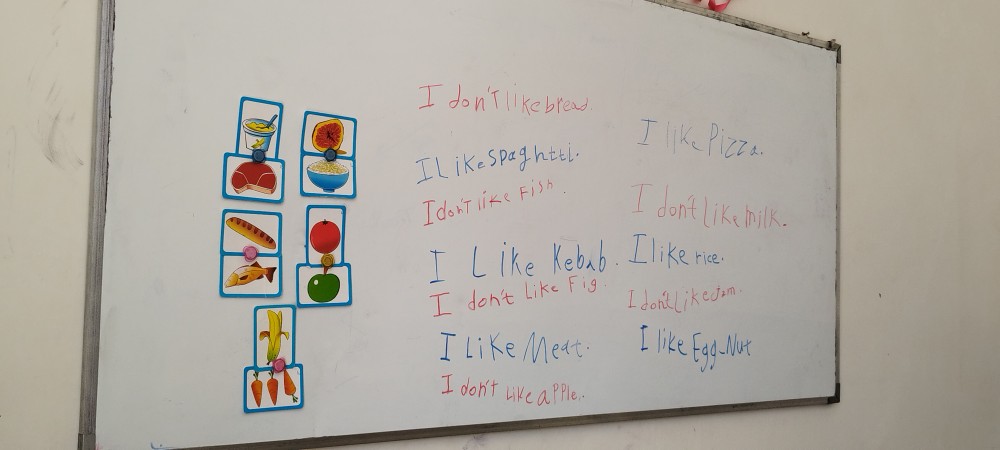 I don't like bread.
I Like spaghtti.
I don't like Fish.
I Like Kebab.
I don't Like Fig.
I Like Meat.
I don't Like apple.
I like Pizza.
I don't Like milk.
I like rice.
I don't Like jam.
I like Egg-Nut